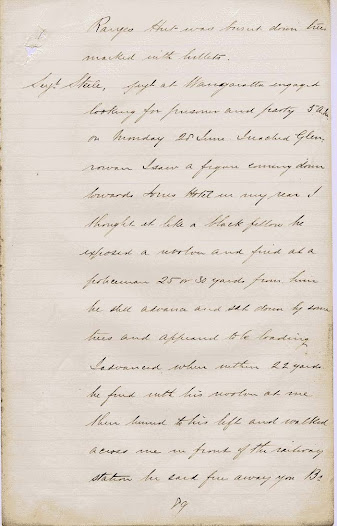 Ranges Hut was burnt down trees
marked with bullets.
Sergt. Steele, sergt at Wangaratta engaged
looking for prisoner and party 5 A.M.
on Monday 28 June I reached Glen
rowan I saw a figure coming down
towards Jones Hotel in my rear I
thought it like a black fellow he
exposed a revolver and fired at a
policeman 25 or 30 yards from him
he still advance and sat down by some
trees and appeared to be loading
I advanced when within 22 yards
he fired with his revolver at me
then turned to his left and walked
across me in front of the railway
station he said fire away you B:
89